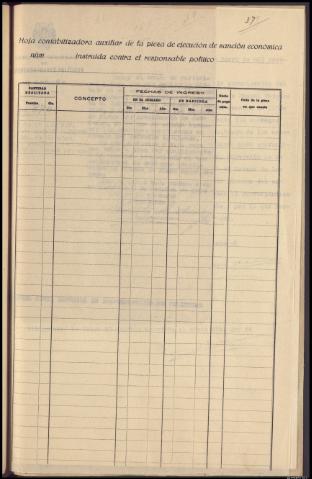 37
Hoja contabilizadora auxiliar de la pieza de ejecución de sanción económica
núm instruída contra el responsable político
CANTIDAD REALIZADA
Pesetas Cts.
CONCEPTO
FECHAS DE INGRESO
EN EL JUZGADO EN HACIENDA
Día Mes Año Día Mes Año
Folio de la pieza
en que consta